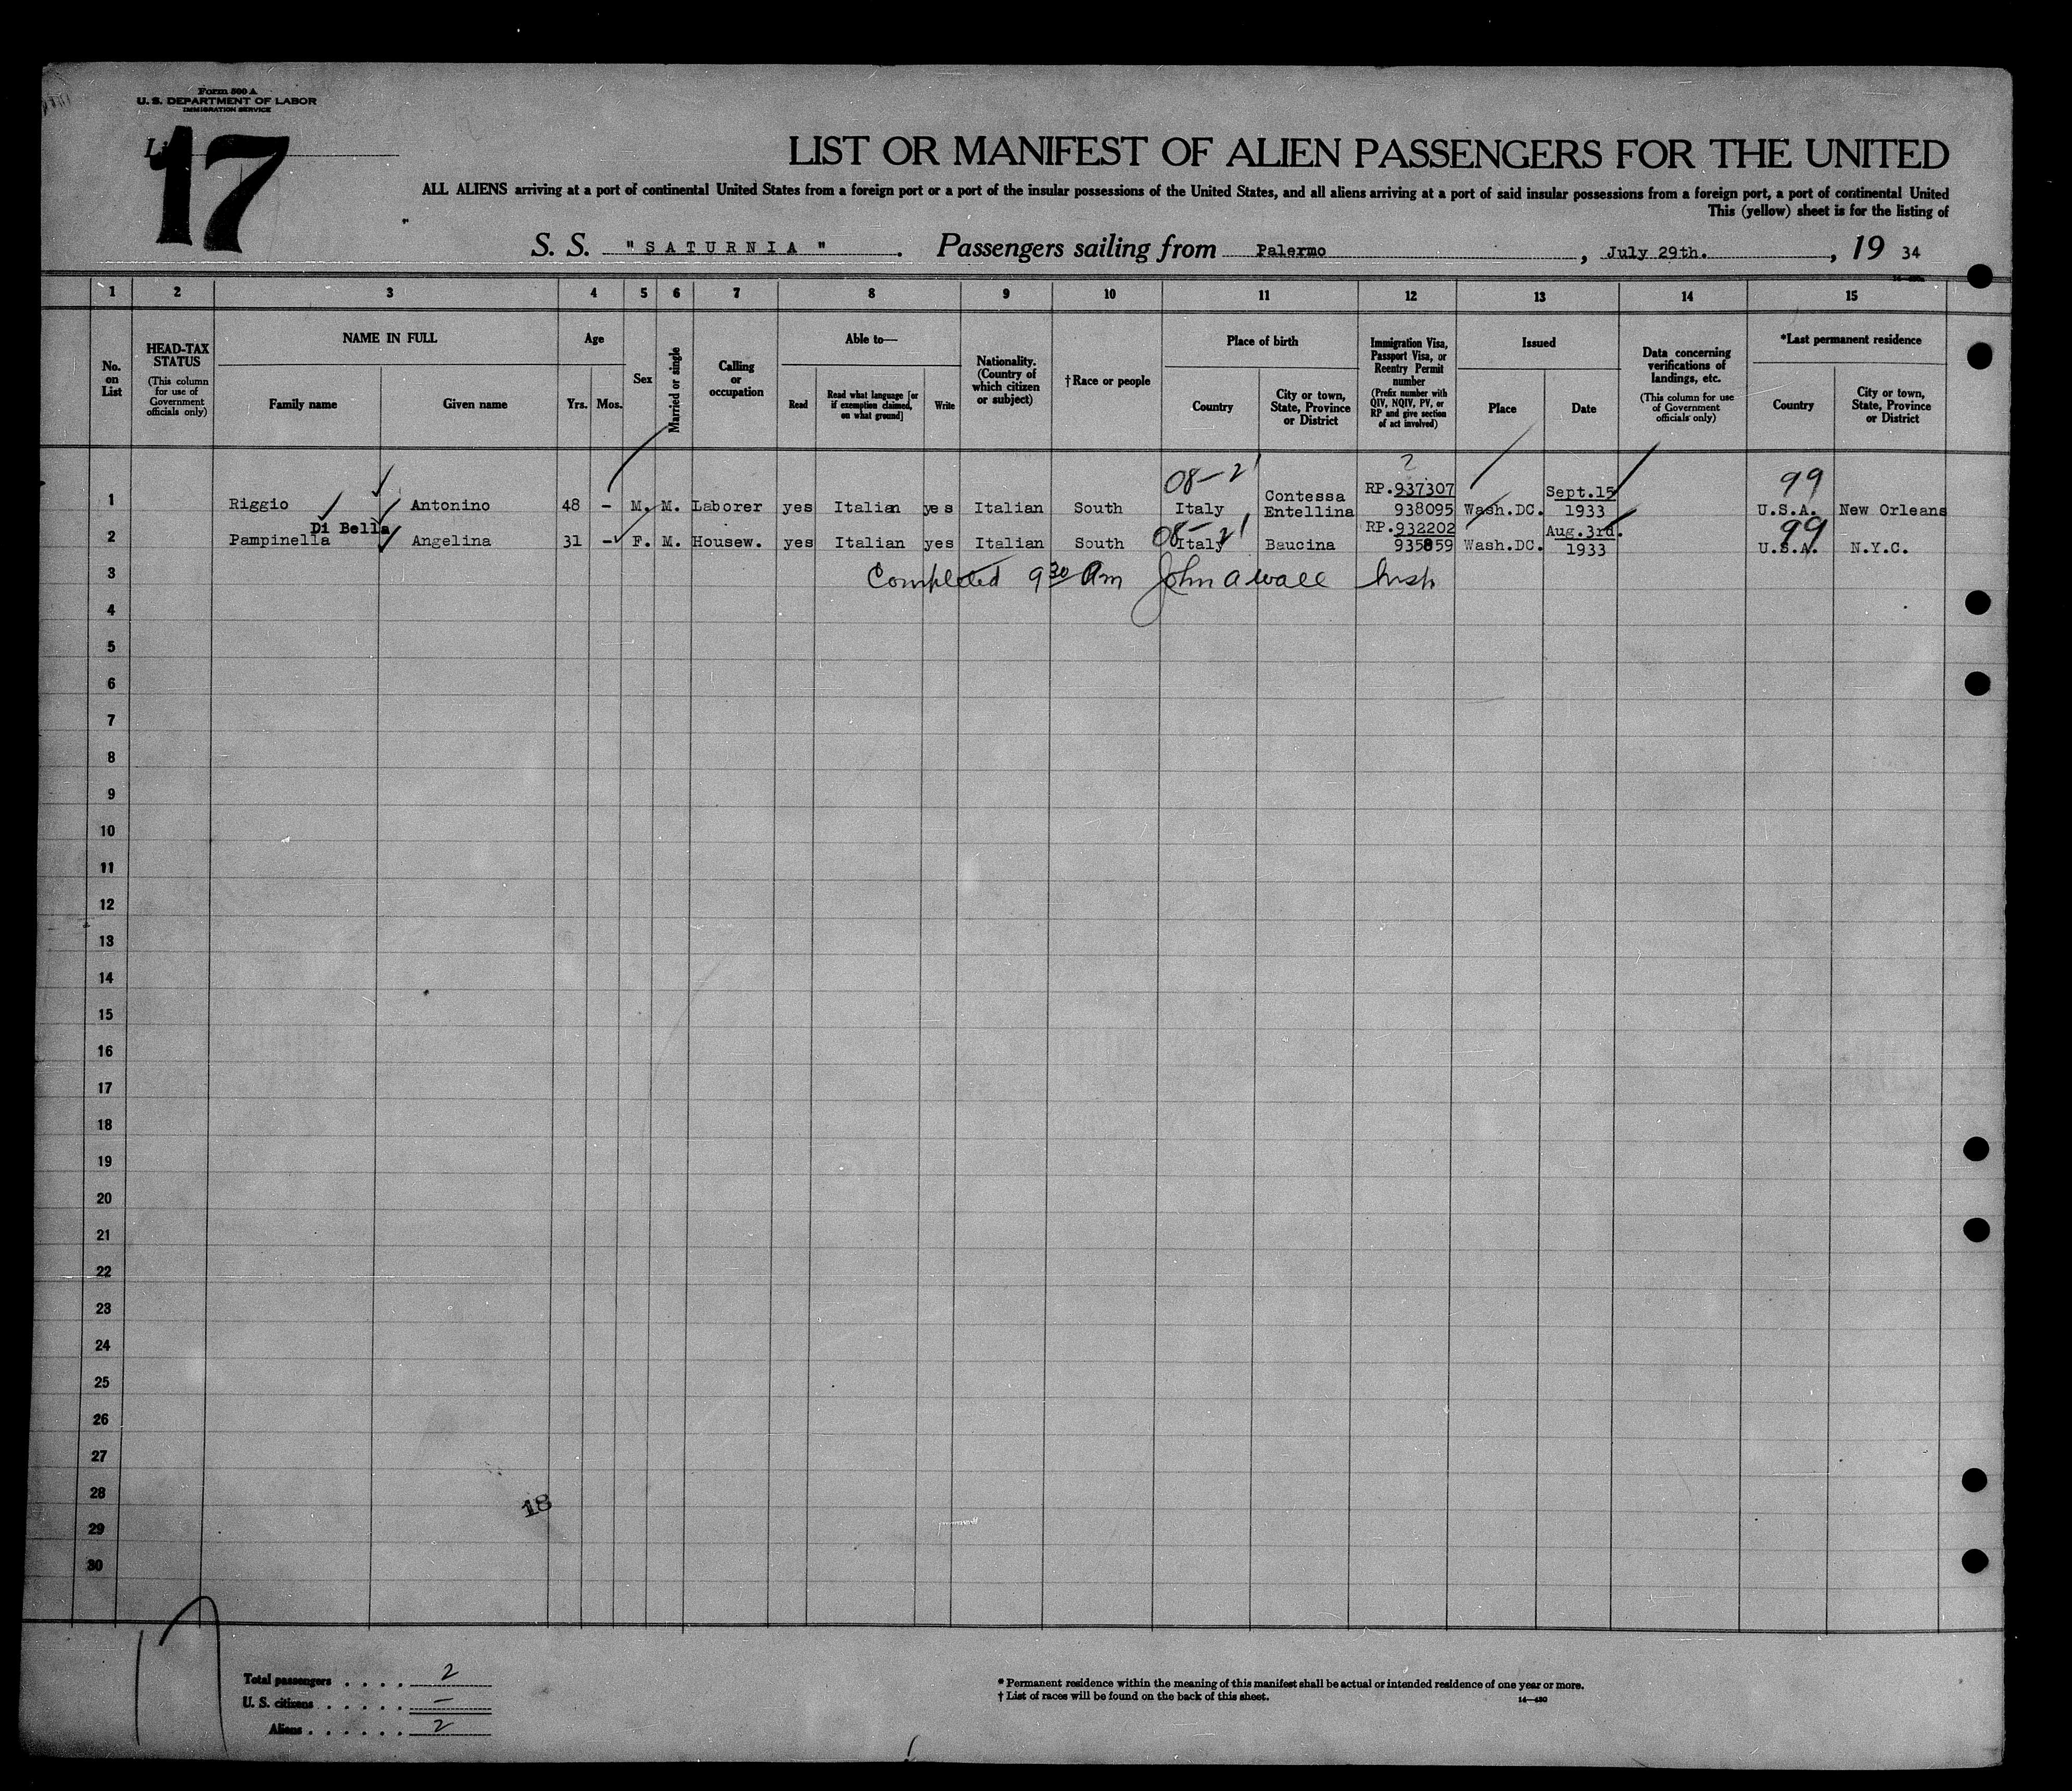 Form 500 A
U. S. DEPARTMENT OF LABOR
IMMIGRATION SERVICE
17
LIST OR MANIFEST OF ALIEN PASSENGERS FOR THE UNITED
ALL ALIENS arriving at a port of continental United States from a foreign port or a port of the insular possessions of the United States, and all aliens arriving at a port of said insular possessions from a foreign port, a port of continental United
This (yellow) sheet is for the listing of
S. S. "SATURNIA". Passengers sailing from Palermo, July 29th., 19 34
1 2 3 4 5 6 7 8 9 10 11 12 13 14 15
No. on List
HEAD-TAX STATUS
(This column for use of Government officials only)
NAME IN FULL
Family name Given name
Age
Yrs. Mos.
Sex
Married or single
Calling or occupation
Able to—
Read
Read what language [or if exemption claimed, on what ground]
Write
Nationality. (Country of which citizen or subject)
†Race or people
Place of birth
Country
City or town, State, Province or District
Immigration Visa, Passport Visa, or Reentry Permit number
(Prefix number with QIV, NQIV, PV, or RP and give section of act involved)
Issued
Place Date
Data concerning verifications of landings, etc.
(This column for use of Government officials only)
*Last permanent residence
Country
City or town, State, Province or District
08-21 ? 99
1 Riggio Antonino 48 - M. M. Laborer yes Italian yes Italian South Italy Contessa Entellina RP.937307 938095 Wash.DC. Sept.15 1933 U.S.A. New Orleans
Di Bella 08-21 99
2 Pampinella Angelina 31 - F. M. Housew. yes Italian yes Italian South Italy Baucina RP.932202 935859 Wash.DC. Aug.3rd. 1933 U.S.A. N.Y.C.
3 Completed 9 30 Am John A Wall Insp
4
5
6
7
8
9
10
11
12
13
14
15
16
17
18
19
20
21
22
23
24
25
26
27
28
18
29
30
17
Total passengers . . . . 2
U. S. citizens . . . . . . —
Aliens . . . . . . 2
* Permanent residence within the meaning of this manifest shall be actual or intended residence of one year or more.
† List of races will be found on the back of this sheet.
14—430